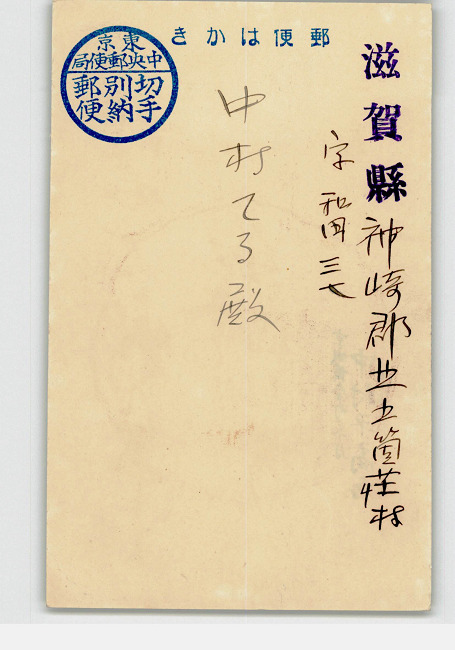 郵便はかき
東京
中央郵便局
切手
別納
郵便
滋賀縣神崎郡北五箇荘村
字 和田 三七
中村てる殿